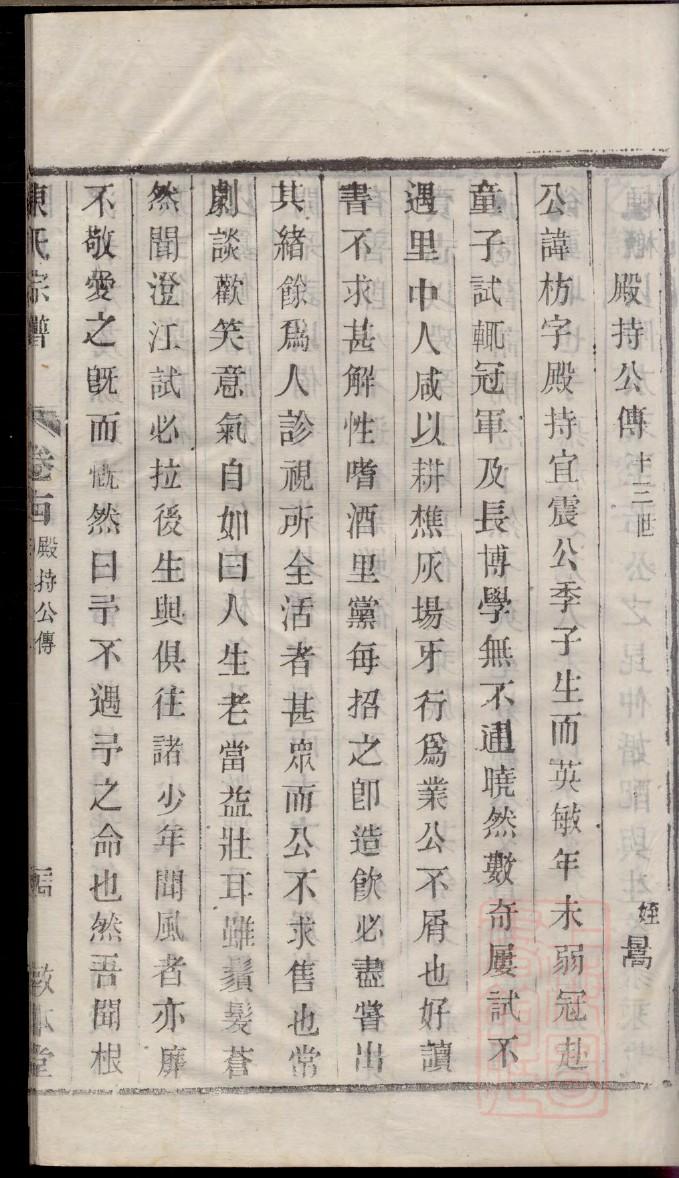 殿持公傳 十三世 姪 暠
公諱枋字殿持宜震公季子生而英敏年未弱冠赴
童子試輒冠軍及長博學無不通曉然數奇屢試不
遇里中人咸以耕樵灰場牙行爲業公不屑也好讀
書不求甚解性嗜酒里黨每招之卽造飮必盡嘗出
其緖餘爲人診視所全活者甚眾而公不求售也常
劇談歡笑意氣自如曰人生老當益壯耳雖鬚髮蒼
然聞澄江試必拉後生與俱往諸少年聞風者亦靡
不敬愛之旣而慨然曰予不遇予之命也然吾聞根
氏宗譜 卷 殿持公傳 堂